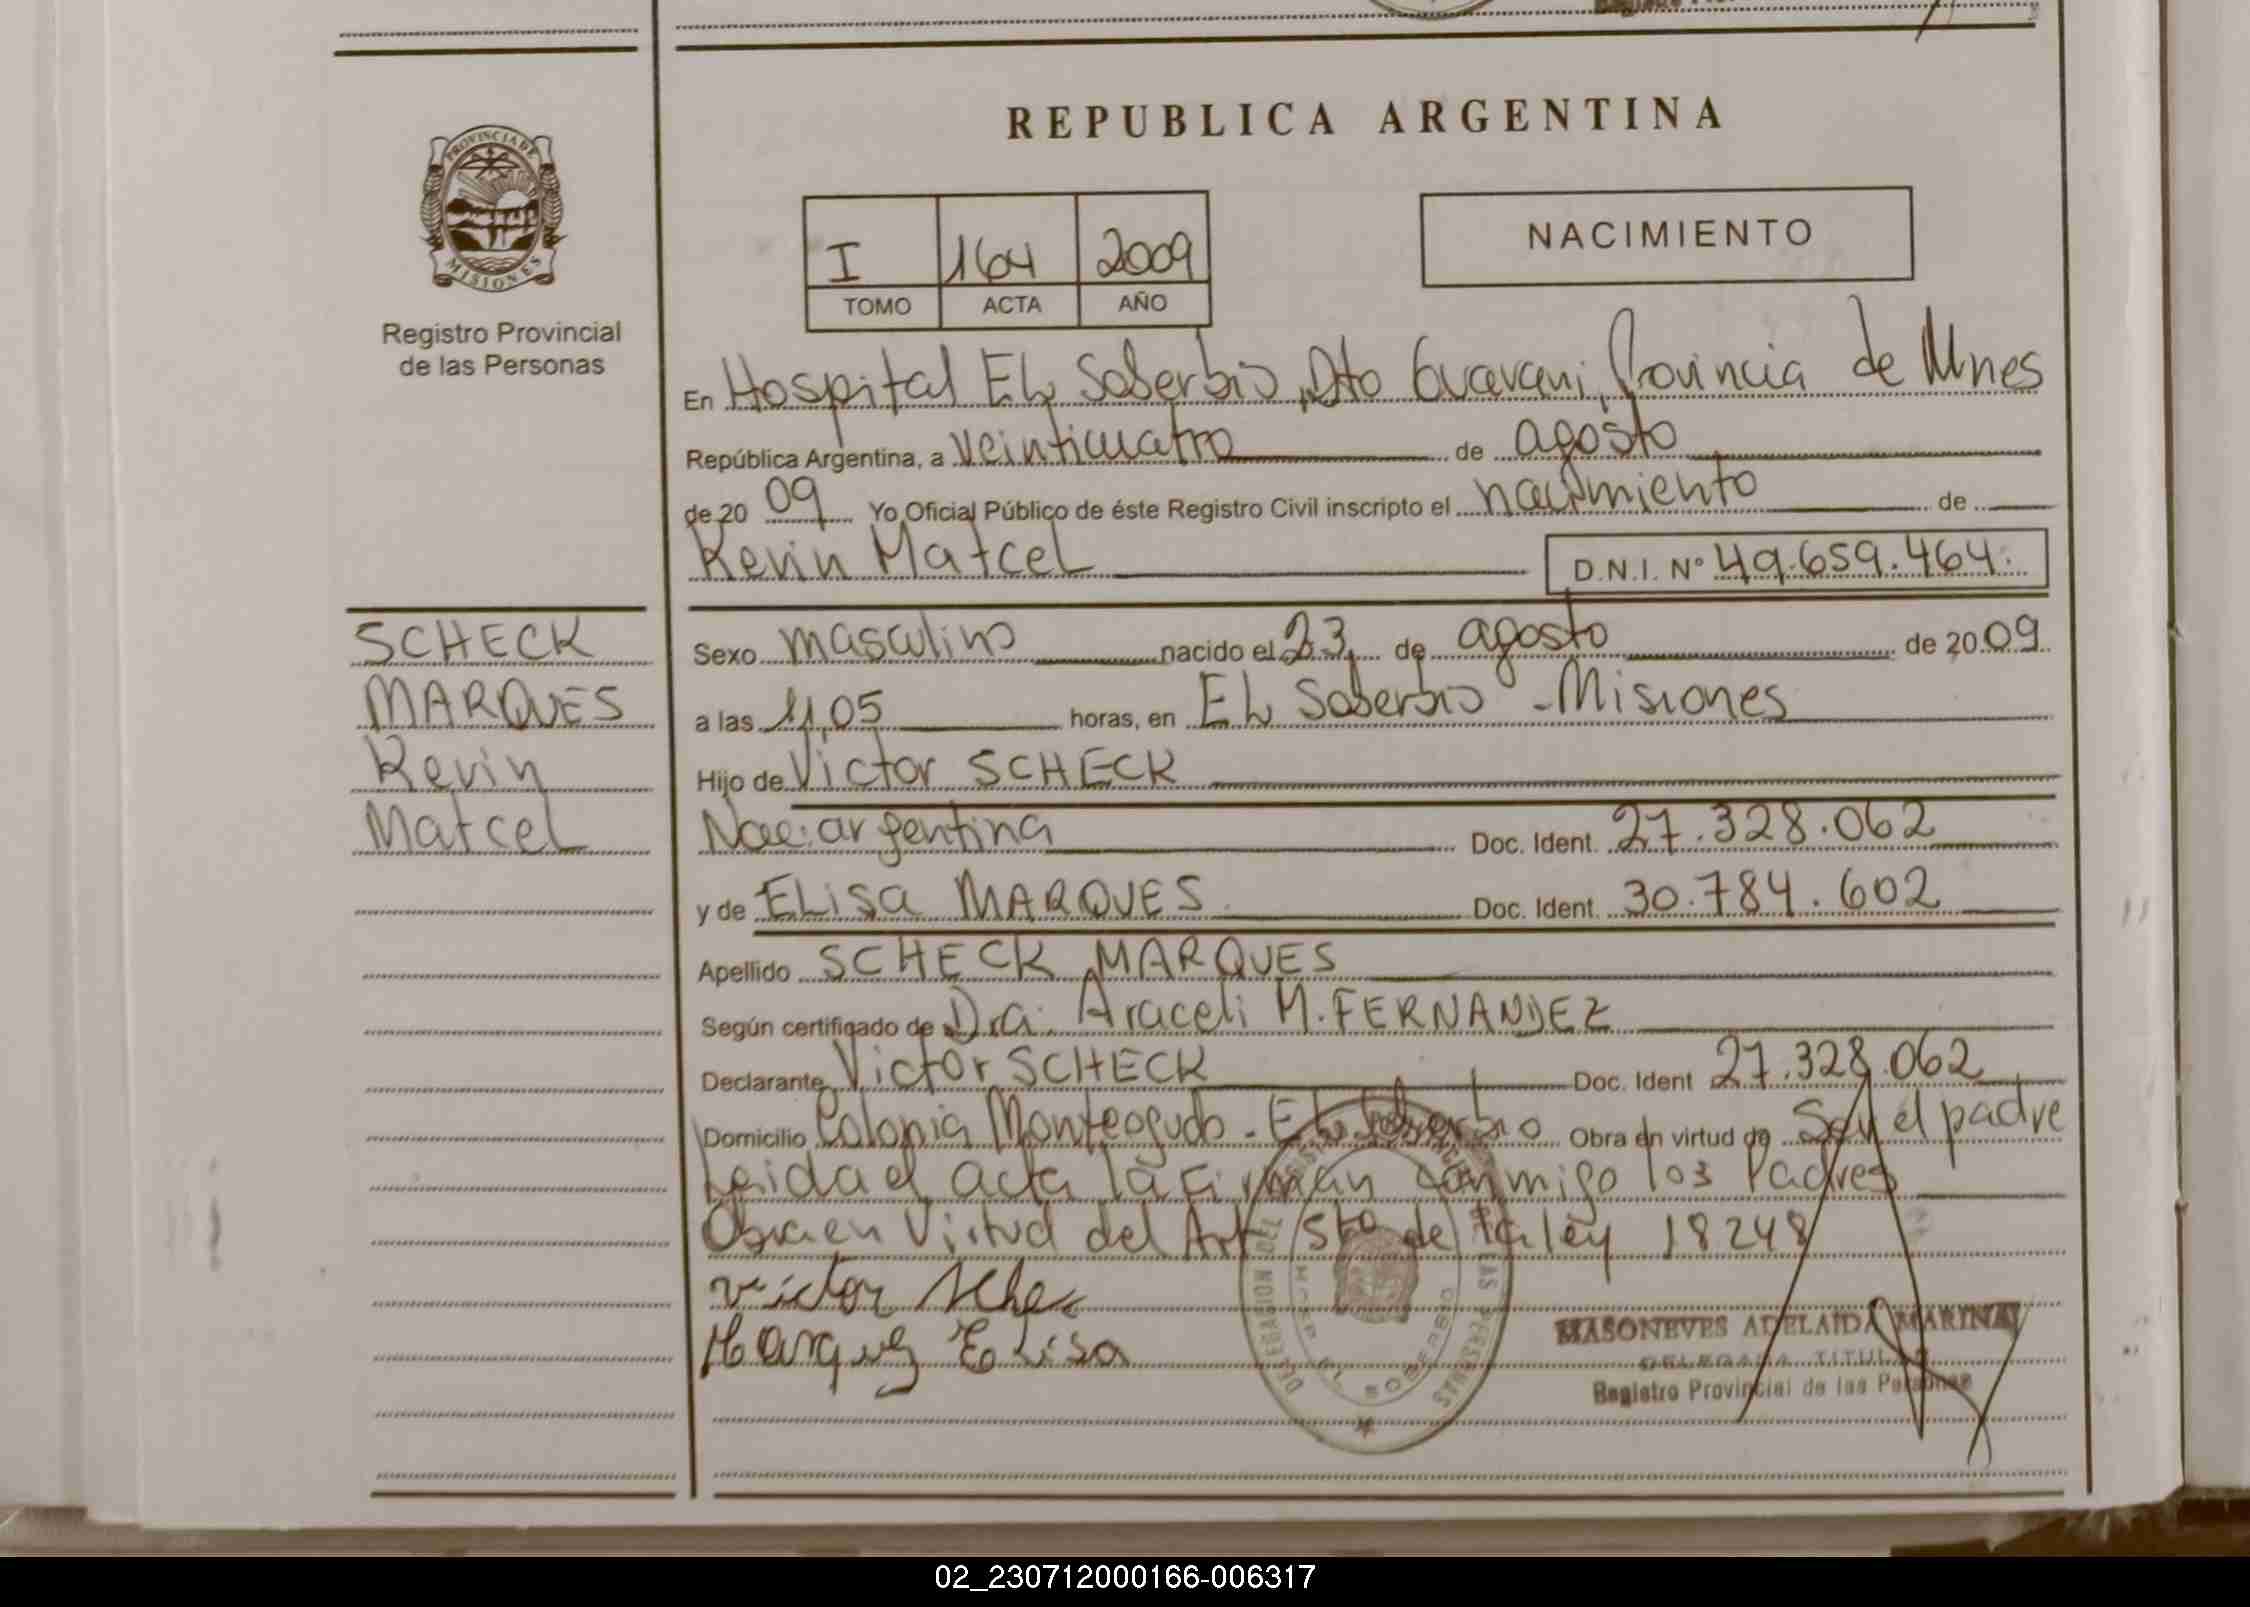 REPUBLICA ARGENTINA
PROVINCIA DE
MISIONES
Registro Provincial
de las Personas
I 164 2009
TOMO ACTA AÑO
NACIMIENTO
En Hospital EL Soberbio, Dto Guarani, Provincia de Mnes
República Argentina, a veinticuatro de agosto
de 20 09 Yo Oficial Público de éste Registro Civil inscripto el nacimiento de
Kevin Marcel D.N.I. Nº 49.659.464.
SCHECK
MARQUES
Kevin
Marcel
Sexo masculino nacido el 23 de agosto de 20 09
a las 11,05 horas, en EL Soberbio - Misiones
Hijo de Victor SCHECK
Nac: argentina Doc. Ident. 27.328.062
y de ELisa MARQUES Doc. Ident. 30.784.602
Apellido SCHECK MARQUES
Según certificado de Dra. Araceli M. FERNANDEZ
Declarante Victor SCHECK Doc. Ident 27.328.062
Domicilio Colonia Monteagudo - EL Soberbio Obra en virtud de Soy el padre
Leida el acta la firman conmigo los Padres
Obra en Virtud del Art 5to de la ley 18248
Victor Schec
Marques Elisa
DELEGACION DEL REGISTRO PROVINCIAL DE LAS PERSONAS
HOSP. EL SOBERBIO
MASONEVES ADELAIDA MARINA
DELEGADA TITULAR
Registro Provincial de las Personas
02_230712000166-006317